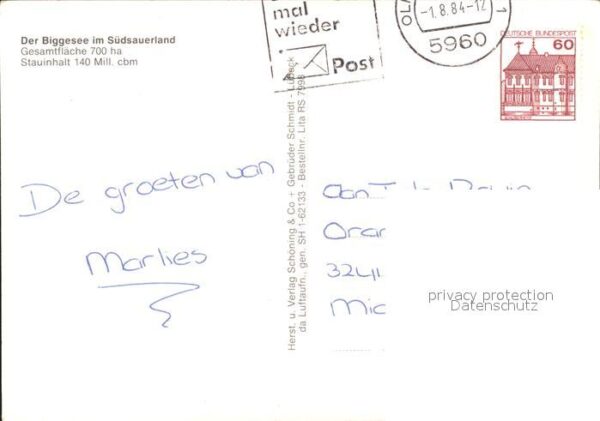 Der Biggesee im Südsauerland
Gesamtfläche 700 ha
Stauinhalt 140 Mill. cbm
mal
wieder
Post
OL
-1.8.84-12
5960
DEUTSCHE BUNDESPOST
60
De groeten van
Marlies
Herst. u. Verlag Schöning & Co + Gebrüder Schmidt - Lübeck
da Luftaufn., gen. SH 1-62133 - Bestellnr. Lita RS 7998
Oran
3241
Mic
privacy protection
Datenschutz